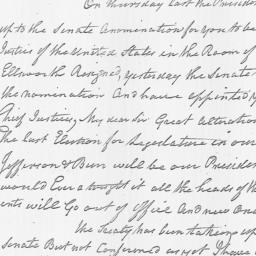 On Thursday last the Presiden
up to the Senate A nomination for you to be
Justice of the United States in the Room of
Ellsworth Resigned, yesterday the Senate
the nomination And have appointed y
Chief Justice, My dear Sir Great Alteration
The last Election for Legeslature in our
Jefferson & Burr will be our Presiden
would Ever a thought it all the heads of th
ents will Go out of office And new One
the Treaty has been taking up
Senate But not Confermed as yet I have